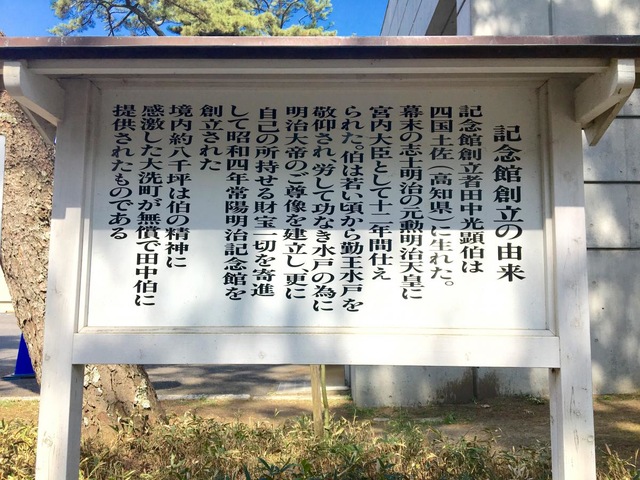 記念館創立の由来
記念館創立者田中光顕伯は
四国土佐（高知県）に生れた。
幕末の志士明治の元勲明治天皇に
宮内大臣として十二年間仕え
られた。伯は若い頃から勤王水戸を
敬仰され、労して功なき水戸の為に
明治大帝のご尊像を建立し、更に
自己の所持せる財宝一切を寄進
して昭和四年常陽明治記念館を
創立された
境内約八千坪は伯の精神に
感激した大洗町が無償で田中伯に
提供されたものである